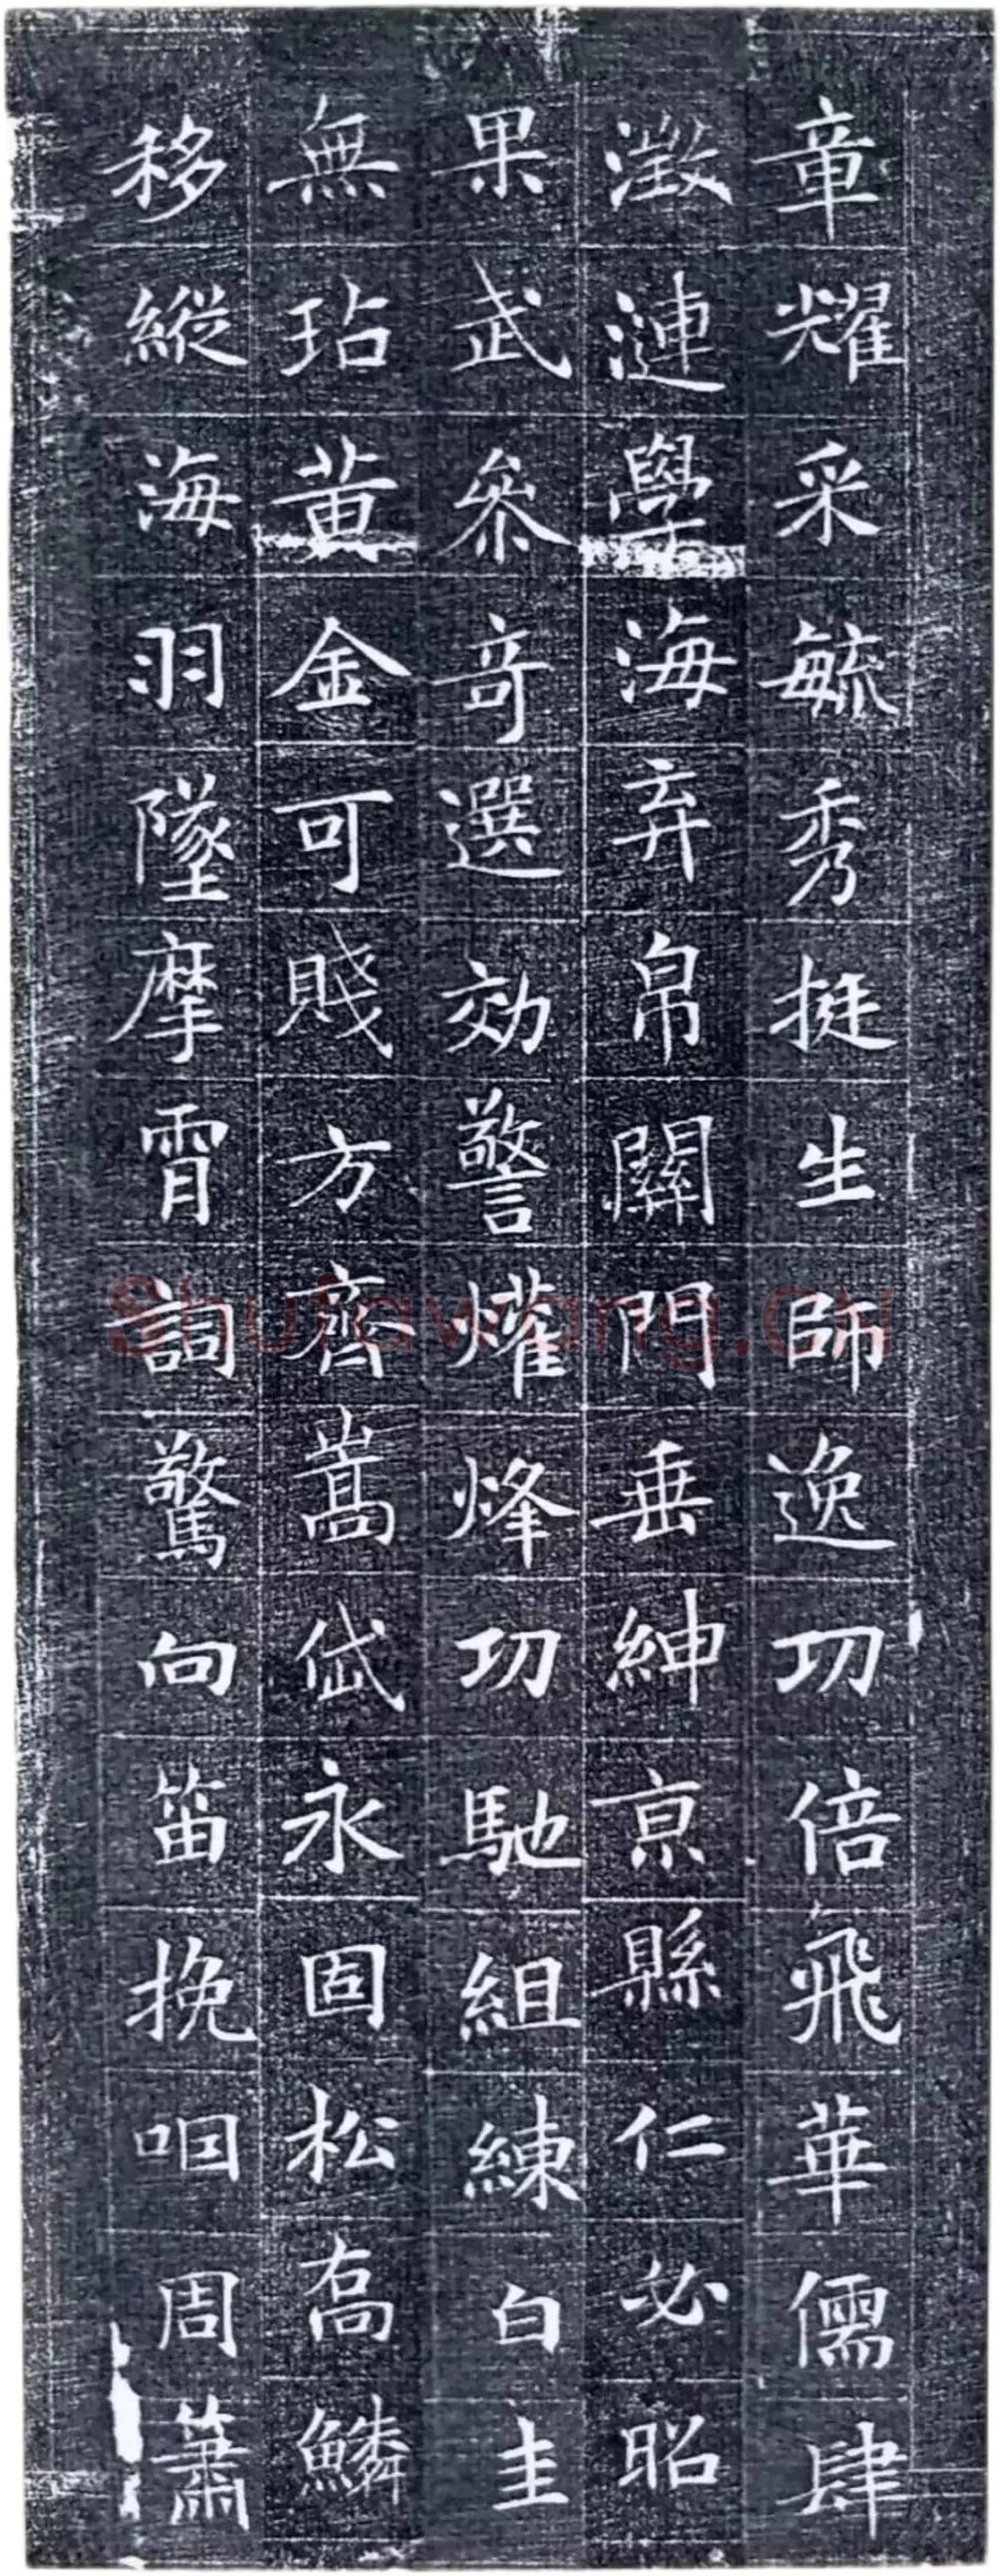 章耀采毓秀挺生師逸功倍飛華儒肆
澂漣學海弃帛關門垂紳京縣仁必昭
果武叅奇選効警爟烽功馳組練白圭
無玷黃金可賤方齊嵩岱永固松喬鱗
移縱海羽墜摩霄詞驚向笛挽咽周簫
Shufawang.CN